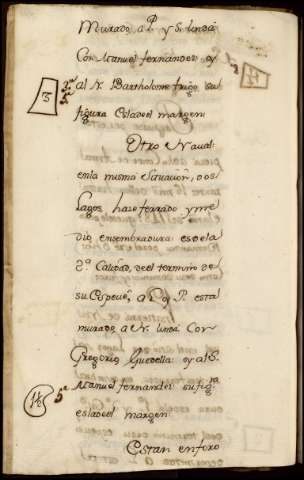 Murado, a P. y S. linda
Con Manuel fernandes, oy
al N. Bartholome trigo su
figura Esladel margen
Otro Naval
en la misma Situación, dos
lagos, haze ferrado y me
dio ensembradura: es de la
2ª Calidad, deel termino de
su Especie, a L. y P. esta
murado, a N. linda Con
Gregorio y al S.
Manuel fernandes su figª
es la del margen
Estan enforo
3
2ª
5ª
16
5ª